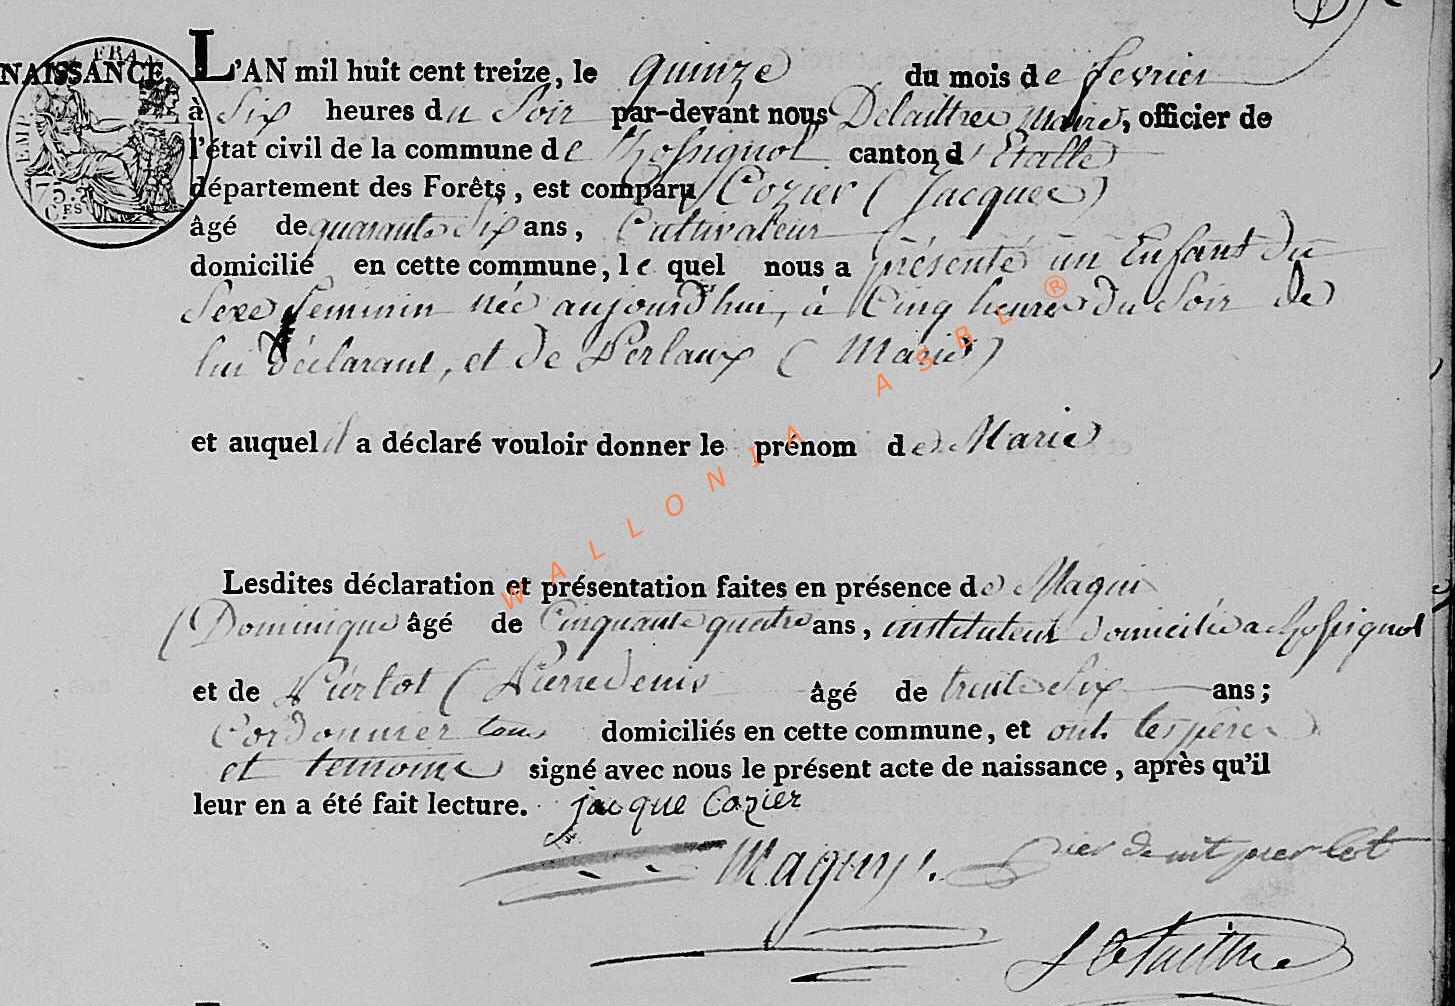 NAISSANCE. L'AN mil huit cent treize, le quinze du mois de fevrier
à Six heures du Soir par-devant nous Delaittre Maire, officier de
l'état civil de la commune de Rossignol canton d'Etalle
département des Forêts, est comparu Cozier (Jacque)
âgé de quarante Six ans, Cultivateur
domicilié en cette commune, lequel nous a présenté un Enfant du
Sexe feminin née aujourd'hui, à Cinq heures du Soir de
lui déclarant, et de Perlaux (Marie)
et auquel il a déclaré vouloir donner le prénom de Marie
Lesdites déclaration et présentation faites en présence de Magni
(Dominique âgé de Cinquante quatre ans, instituteur domicilié a Rossignol
et de Pierlot (Pierre denis âgé de trente Six ans;
Cordonnier tous domiciliés en cette commune, et ont les père
et temoins signé avec nous le présent acte de naissance, après qu'il
leur en a été fait lecture. jacque Cozier
Maguy. pier denit pierlot
Delaittre
EMP. FRA
75.
CES
WALLONIA ASBL ®